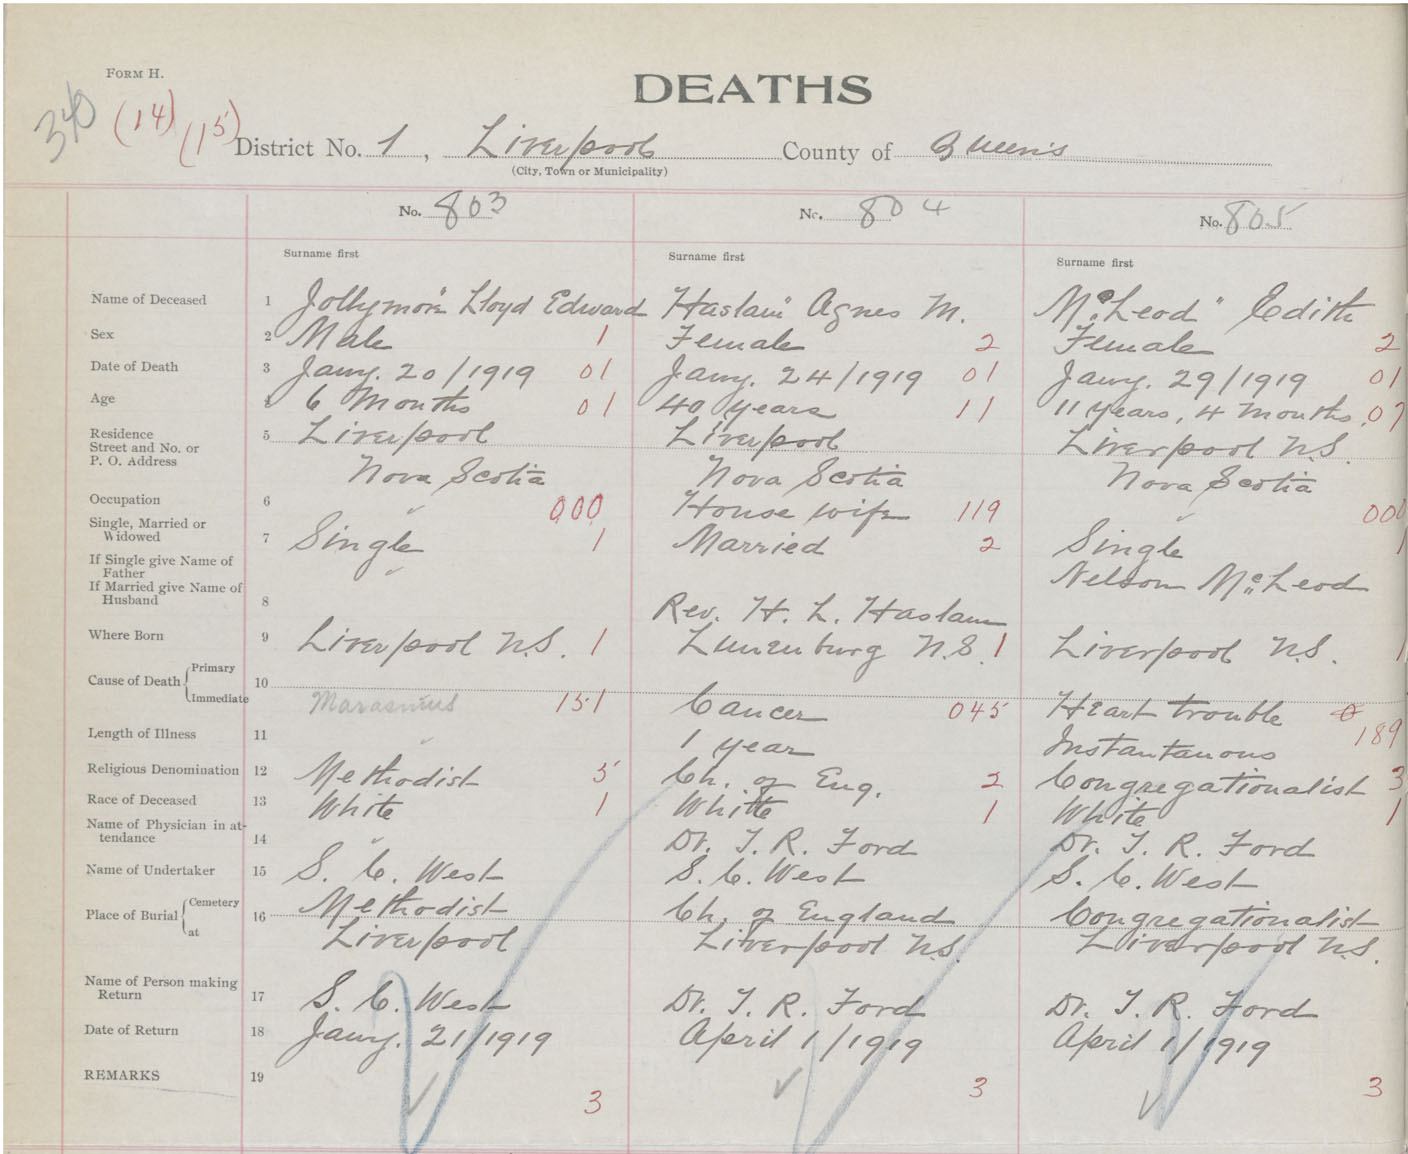 FORM H.
DEATHS
340 (14) (15)
District No. 1, Liverpool County of Queens
(City, Town or Municipality)
No. 803 No. 804 No. 805
Surname first Surname first Surname first
Name of Deceased 1 Jollymore" Lloyd Edward Haslam" Agnes M. McLeod" Edith
Sex 2 Male 1 Female 2 Female 2
Date of Death 3 Jany. 20/1919 01 Jany. 24/1919 01 Jany. 29/1919 01
Age 4 6 Months 01 40 years 11 11 years, 4 months. 07
Residence 5 Liverpool Liverpool Liverpool N.S.
Street and No. or
P. O. Address Nova Scotia Nova Scotia Nova Scotia
Occupation 6 000 House wife 119 000
Single, Married or
Widowed 7 Single 1 Married 2 Single 1
If Single give Name of
Father Nelson McLeod
If Married give Name of
Husband 8 Rev. H. L. Haslam
Where Born 9 Liverpool N.S. 1 Lunenburg N.S. 1 Liverpool N.S. 1
Cause of Death Primary 10
Immediate Marasmus 151 Cancer 045 Heart trouble 0 189
Length of Illness 11 1 year Instantanous
Religious Denomination 12 Methodist 5 Ch. of Eng. 2 Congregationalist 3
Race of Deceased 13 White 1 White 1 White 1
Name of Physician in at-
tendance 14 Dr. T. R. Ford Dr. T. R. Ford
Name of Undertaker 15 S. C. West S. C. West S. C. West
Place of Burial Cemetery 16 Methodist Ch. of England Congregationalist
at Liverpool Liverpool N.S. Liverpool N.S.
Name of Person making
Return 17 S. C. West Dr. T. R. Ford Dr. T. R. Ford
Date of Return 18 Jany. 21/1919 April 1/1919 April 1/1919
REMARKS 19
3 3 3